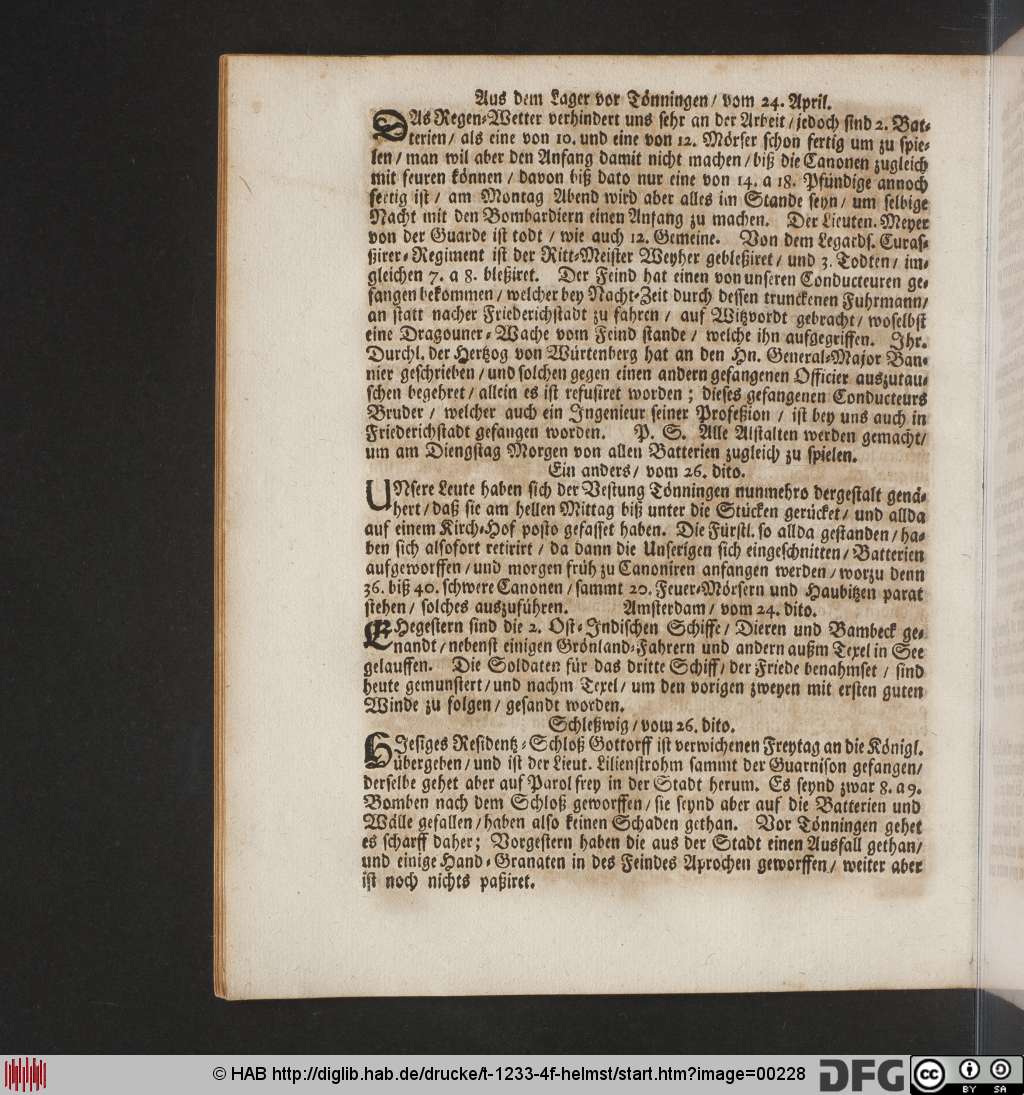 Aus dem Lager vor Tönningen / vom 24. April.
DAs Regen-Wetter verhindert uns sehr an der Arbeit / jedoch sind 2. Bat-
terien / als eine von 10. und eine von 12. Mörser schon fertig um zu spie-
len / man wil aber den Anfang damit nicht machen / biß die Canonen zugleich
mit feuren können / davon biß dato nur eine von 14. a 18. Pfündige annoch
fertig ist / am Montag Abend wird aber alles im Stande seyn / um selbige
Nacht mit den Bombardiern einen Anfang zu machen. Der Lieuten. Meyer
von der Guarde ist todt / wie auch 12. Gemeine. Von dem Legards. Curas-
ßirer-Regiment ist der Ritt-Meister Weyher gebleßiret / und 3. Todten / im-
gleichen 7. a 8. bleßiret. Der Feind hat einen von unseren Conducteuren ge-
fangen bekommen / welcher bey Nacht-Zeit durch dessen trunckenen Fuhrmann /
an statt nacher Friederichstadt zu fahren / auf Witzvordt gebracht / woselbst
eine Dragouner-Wache vom Feind stande / welche ihn aufgegriffen. Ihr.
Durchl. der Hertzog von Würtenberg hat an den Hn. General-Major Ban-
nier geschrieben / und solchen gegen einen andern gefangenen Officier auszutau-
schen begehret / allein es ist refusiret worden ; dieses gefangenen Conducteurs
Bruder / welcher auch ein Ingenieur seiner Profeßion / ist bey uns auch in
Friederichstadt gefangen worden. P. S. Alle Alstalten werden gemacht /
um am Diengstag Morgen von allen Batterien zugleich zu spielen.
Ein anders / vom 26. dito.
UNsere Leute haben sich der Vestung Tönningen nunmehro dergestalt genä-
hert / daß sie am hellen Mittag biß unter die Stücken gerücket / und allda
auf einem Kirch-Hof posto gefasset haben. Die Fürstl. so allda gestanden / ha-
ben sich alsofort retirirt / da dann die Unserigen sich eingeschnitten / Batterien
aufgeworffen / und morgen früh zu Canoniren anfangen werden / worzu denn
36. biß 40. schwere Canonen / sammt 20. Feuer-Mörsern und Haubitzen parat
stehen / solches auszuführen. Amsterdam / vom 24. dito.
EHegestern sind die 2. Ost-Indischen Schiffe / Dieren und Bambeck ge-
nandt / nebenst einigen Grönland-Fahrern und andern außm Texel in See
gelauffen. Die Soldaten für das dritte Schiff / der Friede benahmset / sind
heute gemunstert / und nachm Texel / um den vorigen zweyen mit ersten guten
Winde zu folgen / gesandt worden.
Schleßwig / vom 26. dito.
HJesiges Residentz-Schloß Gottorff ist verwichenen Freytag an die Königl.
übergeben / und ist der Lieut. Lilienstrohm sammt der Guarnison gefangen /
derselbe gehet aber auf Parol frey in der Stadt herum. Es seynd zwar 8. a 9.
Bomben nach dem Schloß geworffen / sie seynd aber auf die Batterien und
Wälle gefallen / haben also keinen Schaden gethan. Vor Tönningen gehet
es scharff daher ; Vorgestern haben die aus der Stadt einen Ausfall gethan /
und einige Hand-Granaten in des Feindes Aprochen geworffen / weiter aber
ist noch nichts paßiret.
© HAB http://diglib.hab.de/drucke/t-1233-4f-helmst/start.htm?image=00228
DFG
cc BY SA